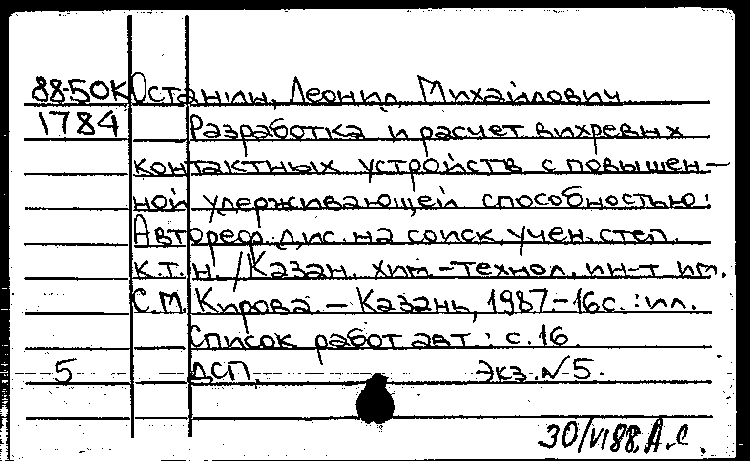 88-50К Останин, Леонид Михайлович
1784 Разработка и расчет вихревых
контактных устройств с повышен-
ной удерживающей способностью:
Автореф. дис. на соиск. учен. степ.
к.т.н. /Казан. хим.-технол. ин-т им.
С.М. Кирова. - Казань, 1987.-16с.:ил.
Список работ авт.: с.16.
5 ДСП. Экз. №5.
30/VI 88. А.С.